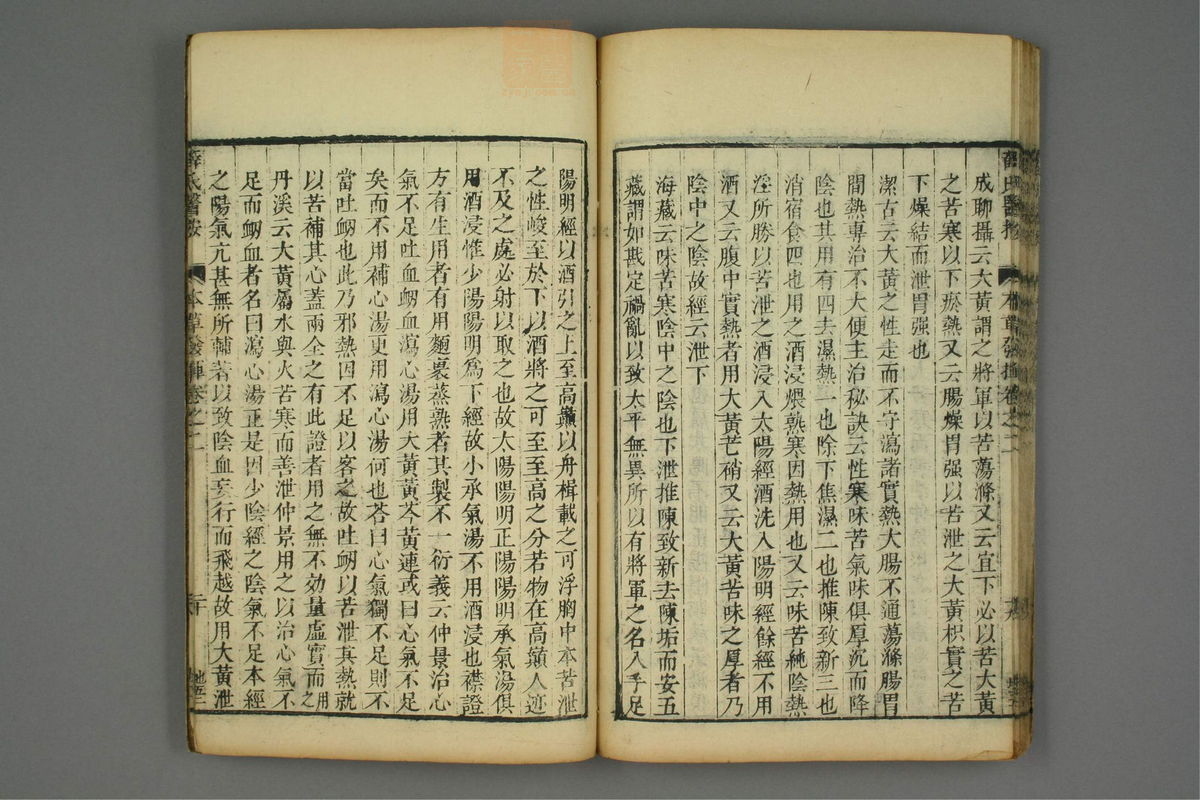 成聊攝云大黃謂之將軍以苦蕩滌又云宜下必以苦大黃
之苦寒以下瘀熱又云腸燥胃强以苦泄之大黃枳實之苦
下燥結而泄胃强也
潔古云大黃之性走而不守瀉諸實熱大腸不通蕩滌腸胃
間熱專治不大便主治秘訣云性寒味苦氣味俱厚沉而降
陰也其用有四去濕熱一也除下焦濕二也推陳致新三也
消宿食四也用之酒浸煨熟寒因熱用也又云味苦純陰熱
淫所勝以苦泄之酒浸入太陽經酒洗入陽明經餘經不用
酒又云腹中實熱者用大黃芒硝又云大黃苦味之厚者乃
陰中之陰故經云泄下
海藏云味苦寒陰中之陰也下泄推陳致新去陳垢而安五
藏謂如戡定禍亂以致太平無異所以有將軍之名入手足
陽明經以酒引之上至高巔以舟楫載之可浮胸中本苦泄
之性峻至於下以酒將之可至至高之分若物在高巔人迹
不及之處必射以取之也故太陽陽明正陽陽明承氣湯俱
用酒浸惟少陽陽明爲下經故小承氣湯不用酒浸也襍證
方有生用者有用麵裹蒸熟者其製不一衍義云仲景治心
氣不足吐血衂血瀉心湯用大黃黃芩黃連或曰心氣不足
矣而不用補心湯更用瀉心湯何也荅曰心氣獨不足則不
當吐衂也此乃邪熱因不足以客之故吐衂以苦泄其熱就
以苦補其心蓋兩全之有此證者用之無不効量虛實而用之
丹溪云大黃屬水與火苦寒而善泄仲景用之以治心氣不
足而衂血者名曰瀉心湯正是因少陰經之陰氣不足本經
之陽氣亢甚無所輔著以致陰血妄行而飛越故用大黃泄
薛氏醫按
本草發揮卷之二
二十